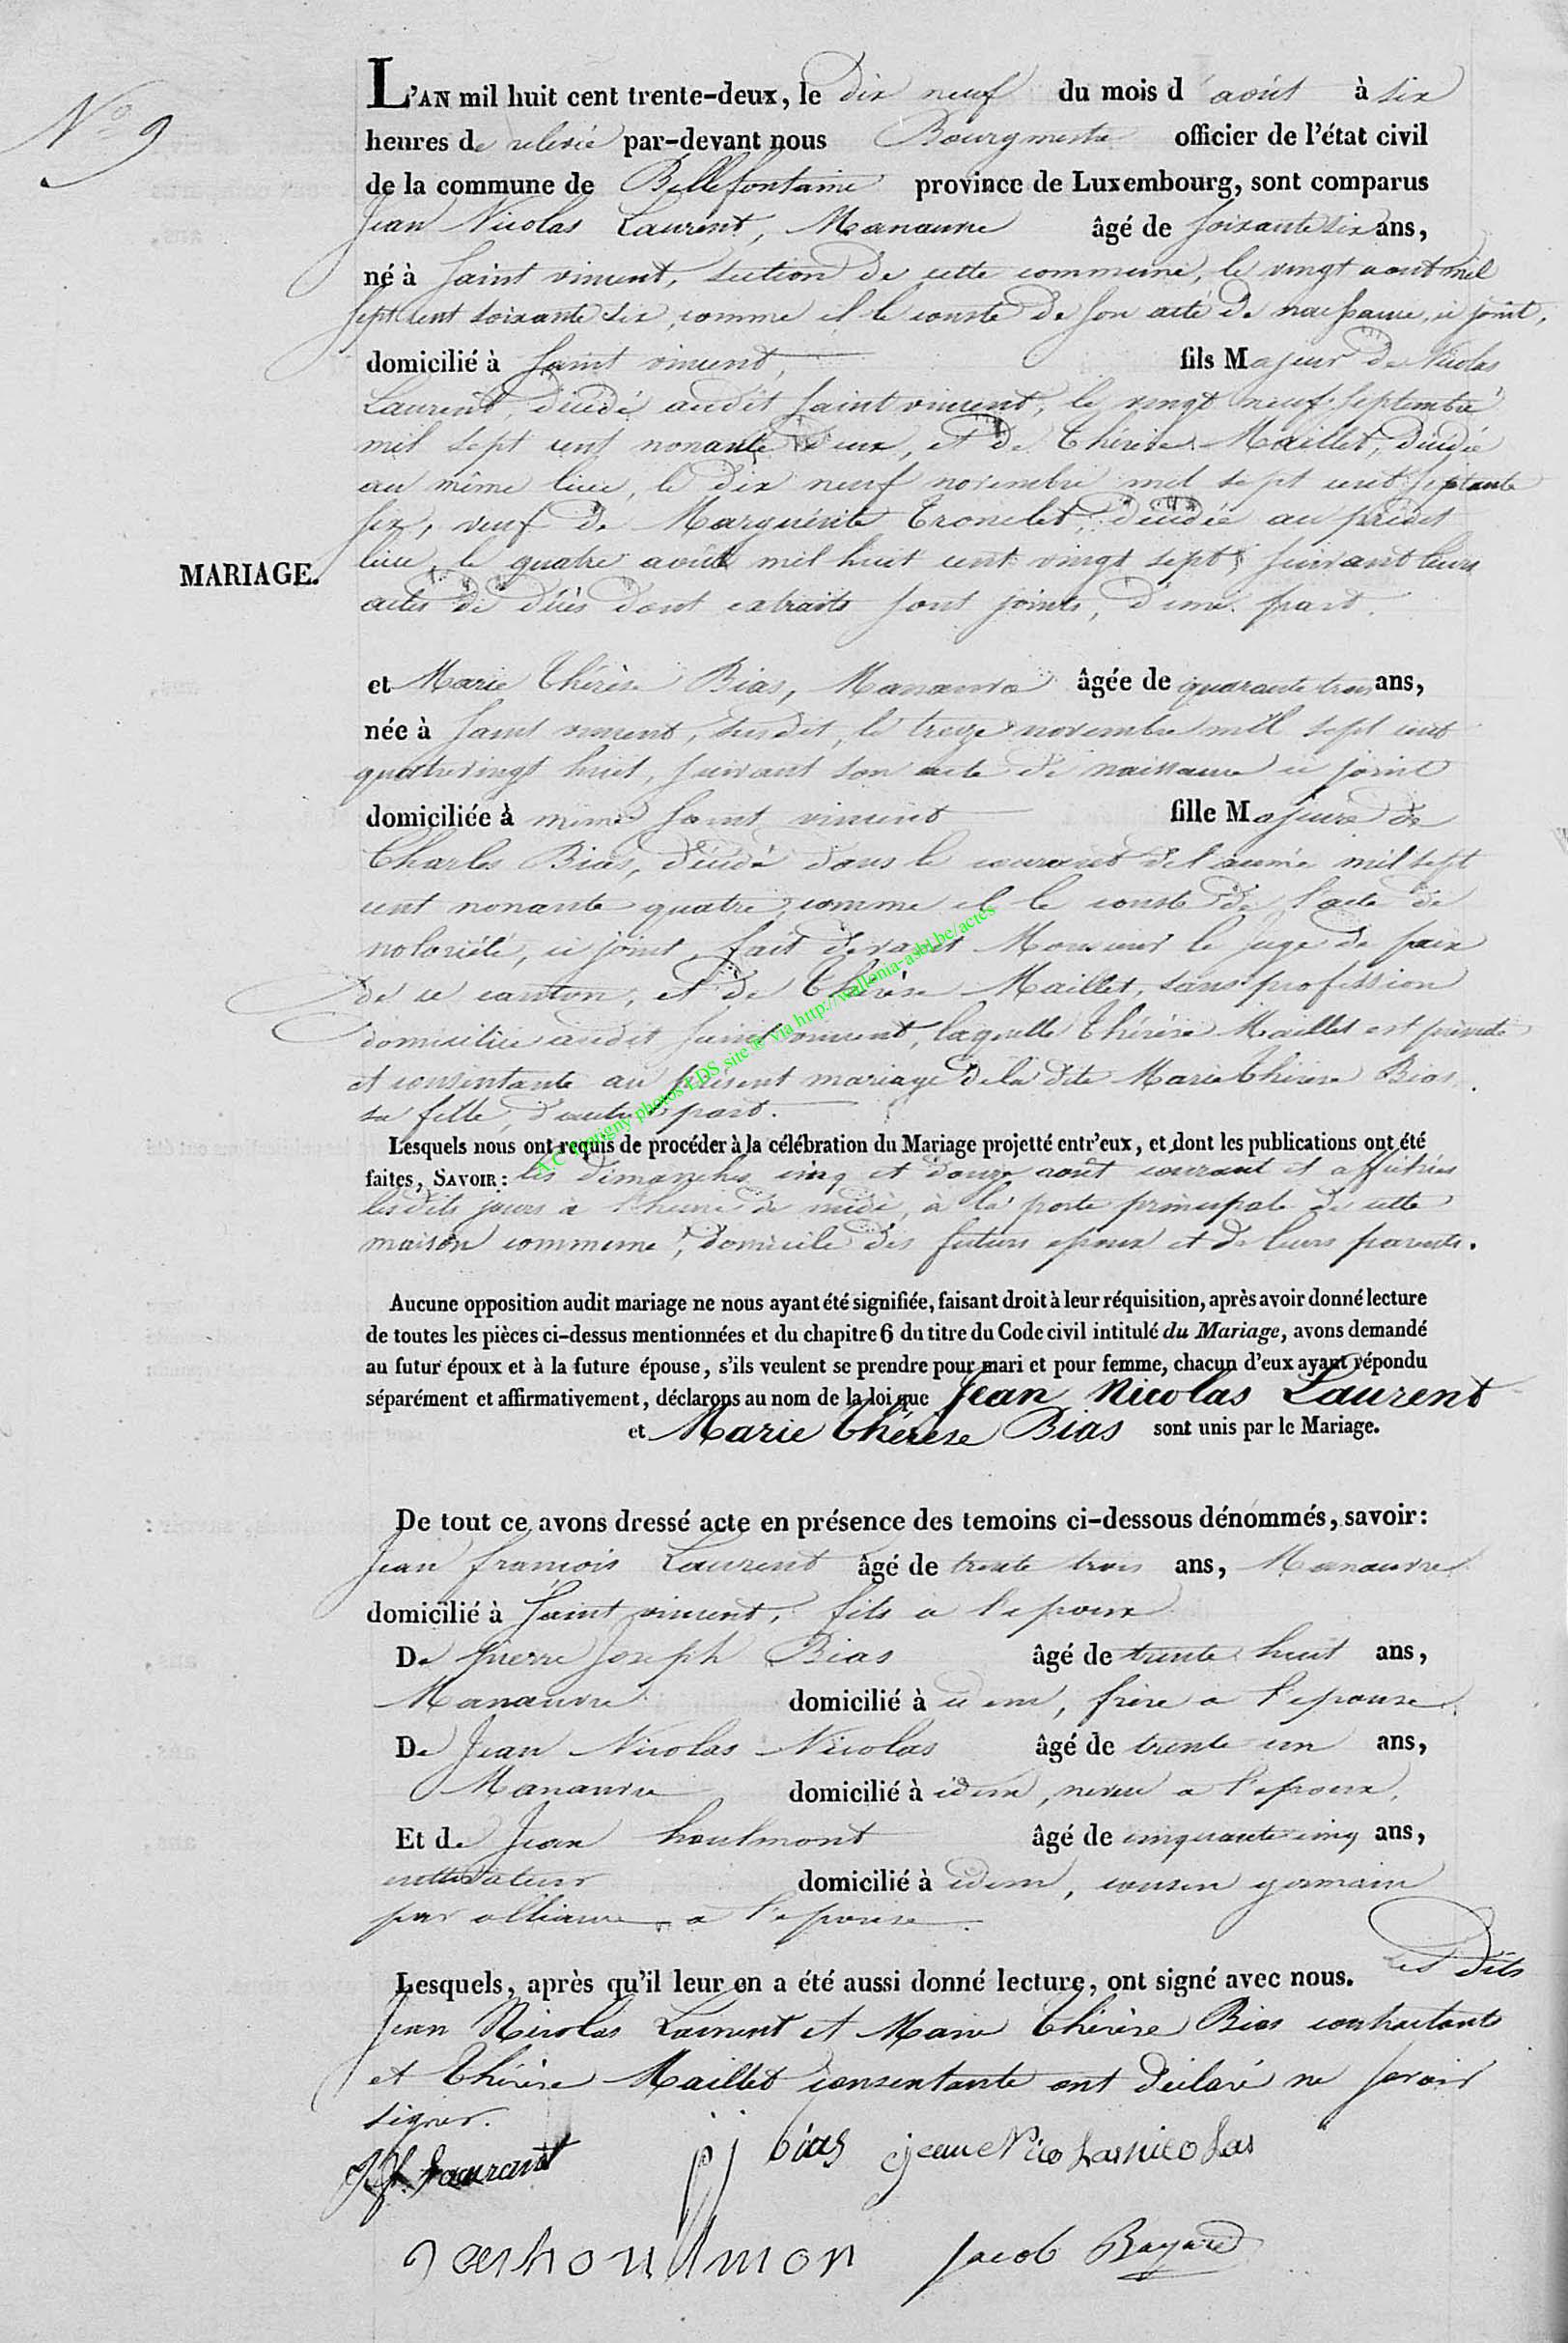 N.º 9
L'AN mil huit cent trente-deux, le dix neuf du mois d'août à six
heures de relevée par-devant nous Bourgmestre officier de l'état civil
de la commune de Bellefontaine province de Luxembourg, sont comparus
Jean Nicolas Laurent, Manœuvre âgé de soixante six ans,
né à Saint vincent, section de cette commune, le vingt aout mil
sept cent soixante six, comme il le conste de son acte de naissance, ci joint,
domicilié à Saint vincent, fils Majeur de Nicolas
Laurent, décédé audit Saint vincent, le vingt neuf septembre
mil sept cent nonante deux, et de Thérèse Maillet, décédée
au même lieu, le dix neuf novembre mil sept cent septante
six, veuf de Marguerite Tronclet, décédée au prédit
lieu, le quatre août mil huit cent vingt sept, suivant leurs
actes de décès dont extraits sont joints, d'une part.
MARIAGE.
et Marie Thérèse Bias, Manœuvre âgée de quarante trois ans,
née à Saint vincent, susdit, le treize novembre mil sept cent
quatre vingt huit, suivant son acte de naissance ci joint
domiciliée à même Saint vincent fille Majeure de
Charles Bias, décédé dans le courant de l'année mil sept
cent nonante quatre, comme il le conste de l'acte de
notoriété, ci joint, fait devant Monsieur le Juge de paix
de ce canton, et de Thérèse Maillet, sans profession
domiciliée audit Saint vincent, laquelle Thérèse Maillet est présente
et consentante au présent mariage de la dite Marie Thérèse Bias,
sa fille, d'autre part.
A.C. Tintigny photos LDS site @ via http://wallonia-asbl.be/actes
Lesquels nous ont requis de procéder à la célébration du Mariage projetté entr'eux, et dont les publications ont été
faites, SAVOIR: les dimanches cinq et douze août courant et affichées
les dits jours à l'heure de midi, à la porte principale de cette
maison commune, domicile des futurs epoux et de leurs parents.
Aucune opposition audit mariage ne nous ayant été signifiée, faisant droit à leur réquisition, après avoir donné lecture
de toutes les pièces ci-dessus mentionnées et du chapitre 6 du titre du Code civil intitulé du Mariage, avons demandé
au futur époux et à la future épouse, s'ils veulent se prendre pour mari et pour femme, chacun d'eux ayant répondu
séparément et affirmativement, déclarons au nom de la loi que Jean Nicolas Laurent
et Marie Thérèse Bias sont unis par le Mariage.
De tout ce avons dressé acte en présence des temoins ci-dessous dénommés, savoir:
Jean françois Laurent âgé de trente trois ans, Manœuvre
domicilié à Saint vincent, fils a l'epoux
De pierre Joseph Bias âgé de trente huit ans,
Manœuvre domicilié à idem, frère a l'epouse.
De Jean Nicolas Nicolas âgé de trente un ans,
Manœuvre domicilié à idem, neveu a l'epoux,
Et de Jean houlmont âgé de cinquante cinq ans,
cultivateur domicilié à idem, cousin germain
par alliance a l'epouse.
Lesquels, après qu'il leur en a été aussi donné lecture, ont signé avec nous. Les dits
Jean Nicolas Laurent et Marie Thérèse Bias contractants
et Thérèse Maillet consentante ont déclaré ne savoir
signer.
J f Laurant pj bias jean Nicolas nicolas
Jean houlmon Jacob Bayard